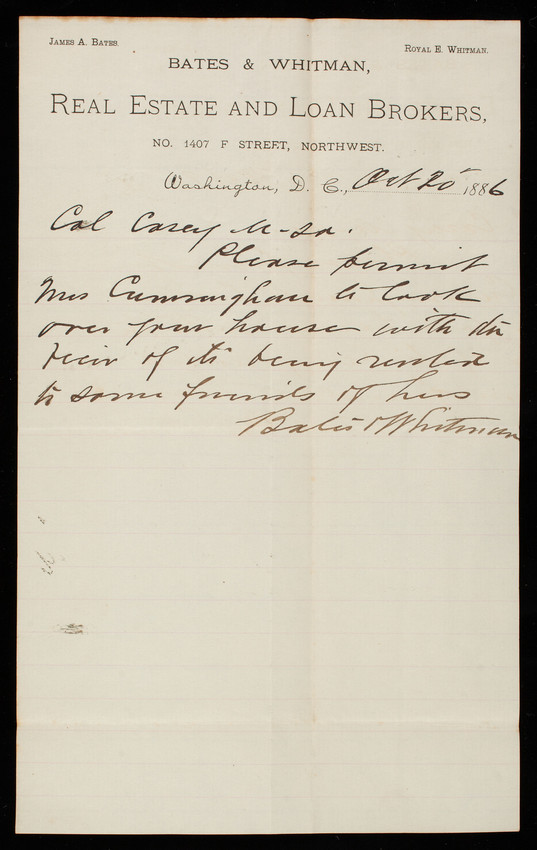 JAMES A. BATES.
ROYAL E. WHITMAN.
BATES & WHITMAN,
REAL ESTATE AND LOAN BROKERS,
NO. 1407 F STREET, NORTHWEST.
Washington, D. C., Oct 20 1886
Col Casey
Please permit
Mrs Cunningham to look
over your house with the
view of its being rented
to some friends of hers
Bates & Whitman